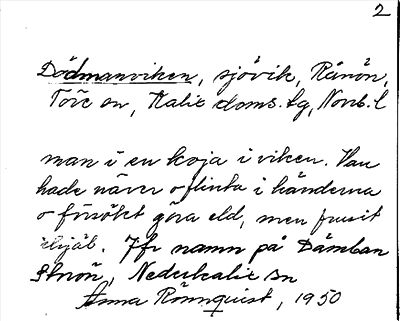 2
Dödmanviken, sjövik, Rånön,
Töre sn, Kalix doms. tg, Norrb. l
man i en koja i viken. Han
hade näver o flinta i händerna
o försökt göra eld, men frusit
ihjäl. Jfr namn på Dåmban
Nederkalix sn
Anna Rönnquist, 1950